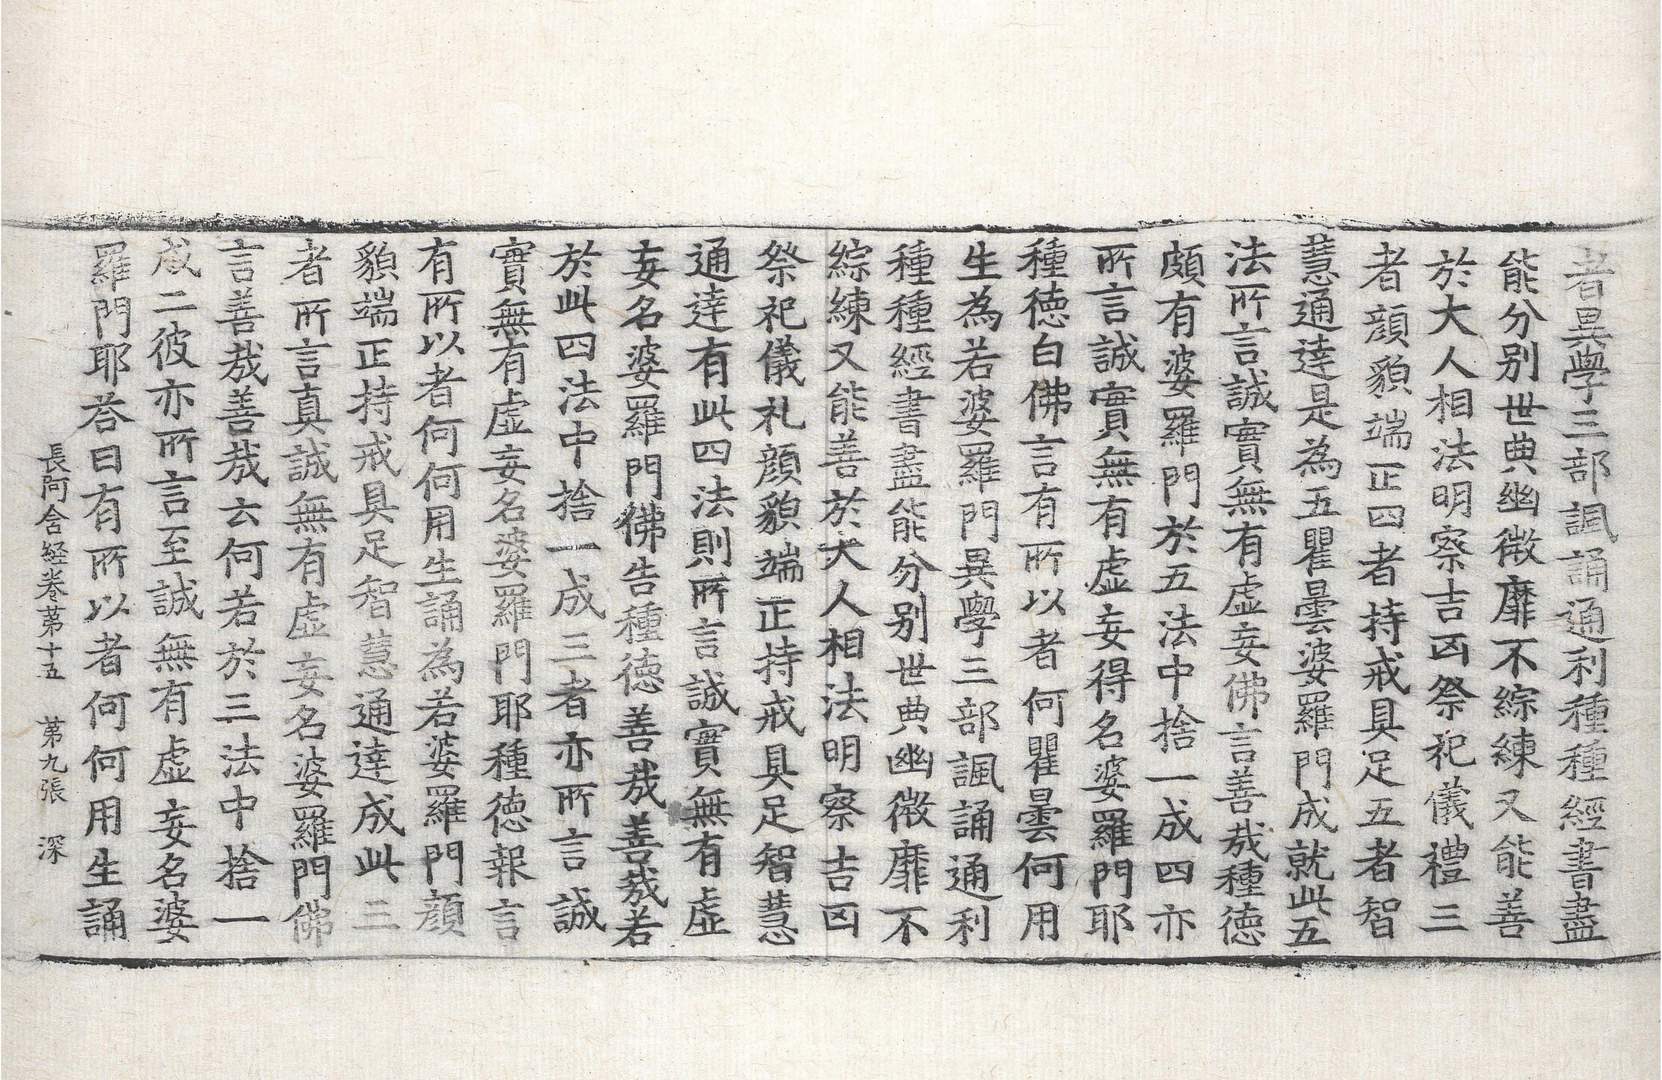 者異學三部諷誦通利種種經書盡
能分別世典幽微靡不綜練又能善
於大人相法明察吉凶祭祀儀禮三
者顔貌端正四者持戒具足五者智
慧通達是為五瞿曇婆羅門成就此五
法所言誠實無有虛妄佛言善哉種德
頗有婆羅門於五法中捨一成四亦
所言誠實無有虛妄得名婆羅門耶
種德白佛言有所以者何瞿曇何用
生為若婆羅門異學三部諷誦通利
種種經書盡能分別世典幽微靡不
綜練又能善於大人相法明察吉凶
祭祀儀礼顔貌端正持戒具足智慧
通達有此四法則所言誠實無有虛
妄名婆羅門佛告種德善哉善哉若
於此四法中捨一成三者亦所言誠
實無有虛妄名婆羅門耶種德報言
有所以者何何用生誦為若婆羅門顔
貌端正持戒具足智慧通達成此三
者所言真誠無有虛妄名婆羅門佛
言善哉善哉云何若於三法中捨一
成二彼亦所言至誠無有虛妄名婆
羅門耶荅曰有所以者何何用生誦
長阿含経卷苐十五 苐九張 深